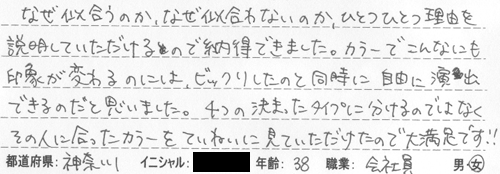 なぜ似合うのか、なぜ似合わないのか、ひとつひとつ理由を
説明していただけるので納得できました。カラーでこんなにも
印象が変わるのには、ビックリしたのと同時に自由に演出
できるのだと思いました。4つの決まったタイプに分けるのではなく
その人に合ったカラーをていねいに見ていただけたので大満足です!!
都道府県:神奈川 イニシャル: 年齢:38 職業:会社員 男・女